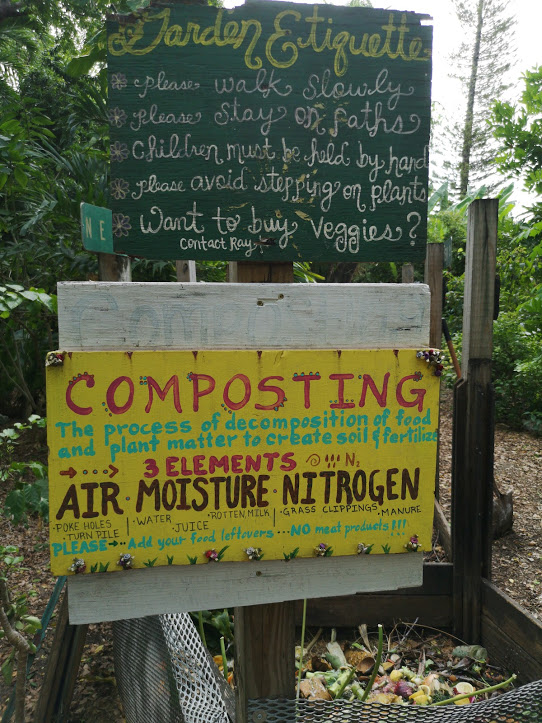 Garden Etiquette
Please walk slowly
Please stay on paths
Children must be held by hand
Please avoid stepping on plants
Want to buy Veggies?
Contact Ray
N E
COMPO
COMPOSTING
The process of decomposition of food
and plant matter to create soil & fertilize
3 ELEMENTS N₂
AIR · MOISTURE · NITROGEN
·POKE HOLES ·WATER ·ROTTEN MILK ·GRASS CLIPPINGS ·MANURE
·TURN PILE JUICE
PLEASE → Add your food leftovers ... NO meat products!!!